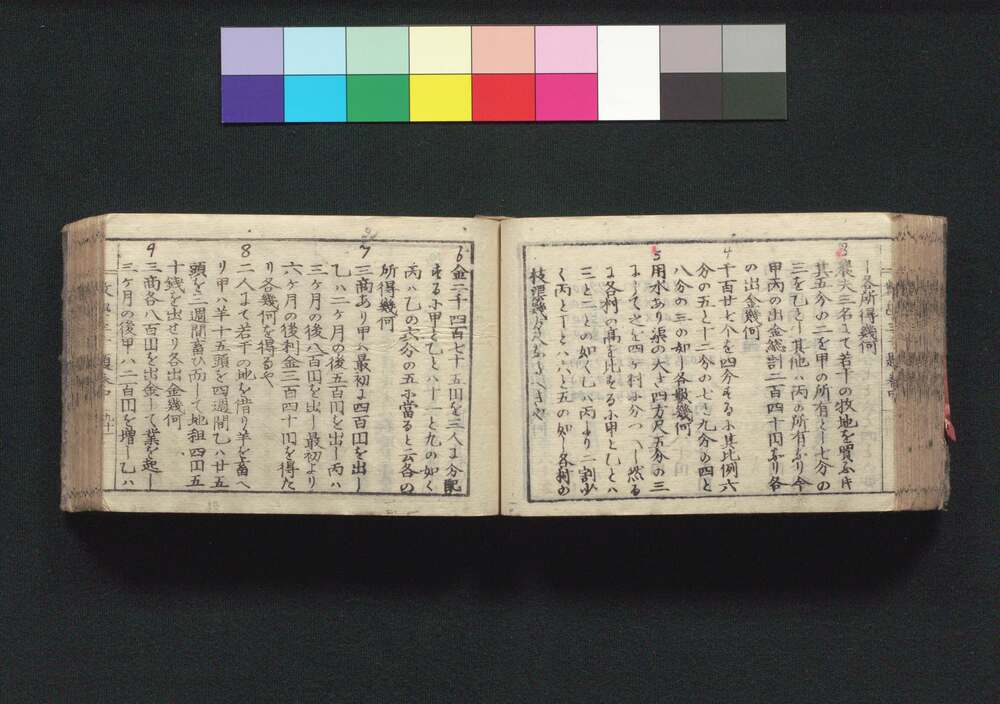 各所得幾何
3 農夫三名にて若干の牧地を買ふに
其五分の二を甲の所有とし七分の
三を乙とし其他ハ丙の所有なり今
甲丙の出金総計二百四十円なり各
の出金幾何
4 千百廿七个を四分するに其比例六
分の五と十二分の七と九分の四と
八分の三の如し各数幾何
5 用水あり渠の大さ四方尺五分の三
にして之を四ヶ村に分つ然る
に各村の高を比するに甲と乙とハ
三と二との如く乙ハ丙より二割少
く丙と丁とハ八と五の如し各村の
6 金二千四百七十五円を三人に分配
するに甲と乙とハ十一と九の如く
丙ハ乙の六分の五に當ると云各の
所得幾何
7 三商あり甲ハ最初に四百円を出し
乙ハ二ヶ月の後五百円を出し丙ハ
三ヶ月の後八百円を出し最初より
六ヶ月の後利金三百四十円を得た
り各幾何を得るや
8 二人にて若干の地を借り羊を畜へ
り甲ハ羊十五頭を四週間乙ハ廿五
頭を二週間畜ひ而して地租四円五
十銭を出せり各出金幾何
9 三商各八百円を出金して業を起し
三ヶ月の後甲ハ二百円を増し乙ハ